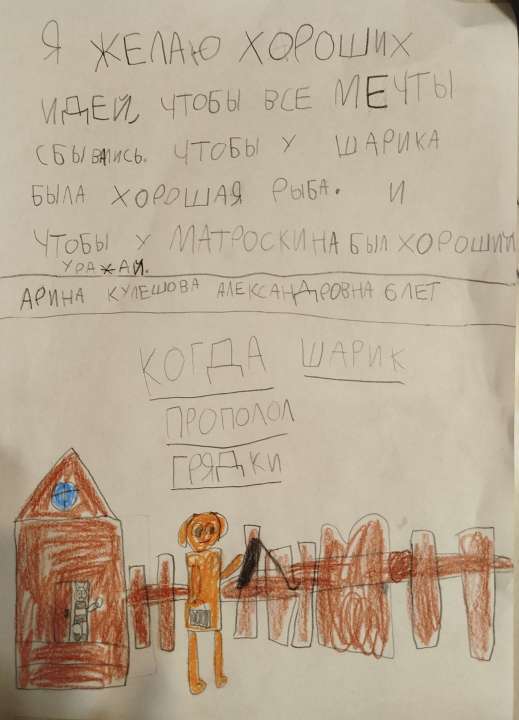 Я ЖЕЛАЮ ХОРОШИХ
ИДЕЙ, ЧТОБЫ ВСЕ МЕЧТЫ
СБЫВАЛИСЬ. ЧТОБЫ У ШАРИКА
БЫЛА ХОРОШАЯ РЫБА. И
ЧТОБЫ У МАТРОСКИНА БЫЛ ХОРОШИЙ
УРАЖАЙ.
АРИНА КУЛЕШОВА АЛЕКСАНДРОВНА 6 ЛЕТ
КОГДА ШАРИК
ПРОПОЛОЛ
ГРЯДКИ